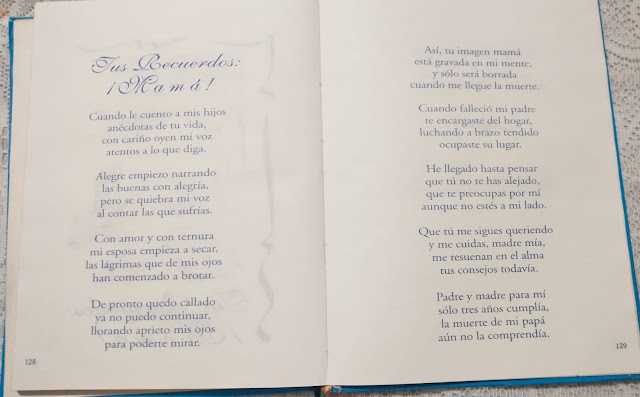 Tus Recuerdos:
¡Mamá!
Cuando le cuento a mis hijos
anécdotas de tu vida,
con cariño oyen mi voz
atentos a lo que diga.
Alegre empiezo narrando
las buenas con alegría,
pero se quiebra mi voz
al contar las que sufrías.
Con amor y con ternura
mi esposa empieza a secar,
las lágrimas que de mis ojos
han comenzado a brotar.
De pronto quedo callado
ya no puedo continuar,
llorando aprieto mis ojos
para poderte mirar.
128
Así, tu imagen mamá
está gravada en mi mente,
y sólo será borrada
cuando me llegue la muerte.
Cuando falleció mi padre
te encargaste del hogar,
luchando a brazo tendido
ocupaste su lugar.
He llegado hasta pensar
que tú no te has alejado,
que te preocupas por mí
aunque no estés a mi lado.
Que tú me sigues queriendo
y me cuidas, madre mía,
me resuenan en el alma
tus consejos todavía.
Padre y madre para mí
sólo tres años cumplía,
la muerte de mi papá
aún no la comprendía.
129